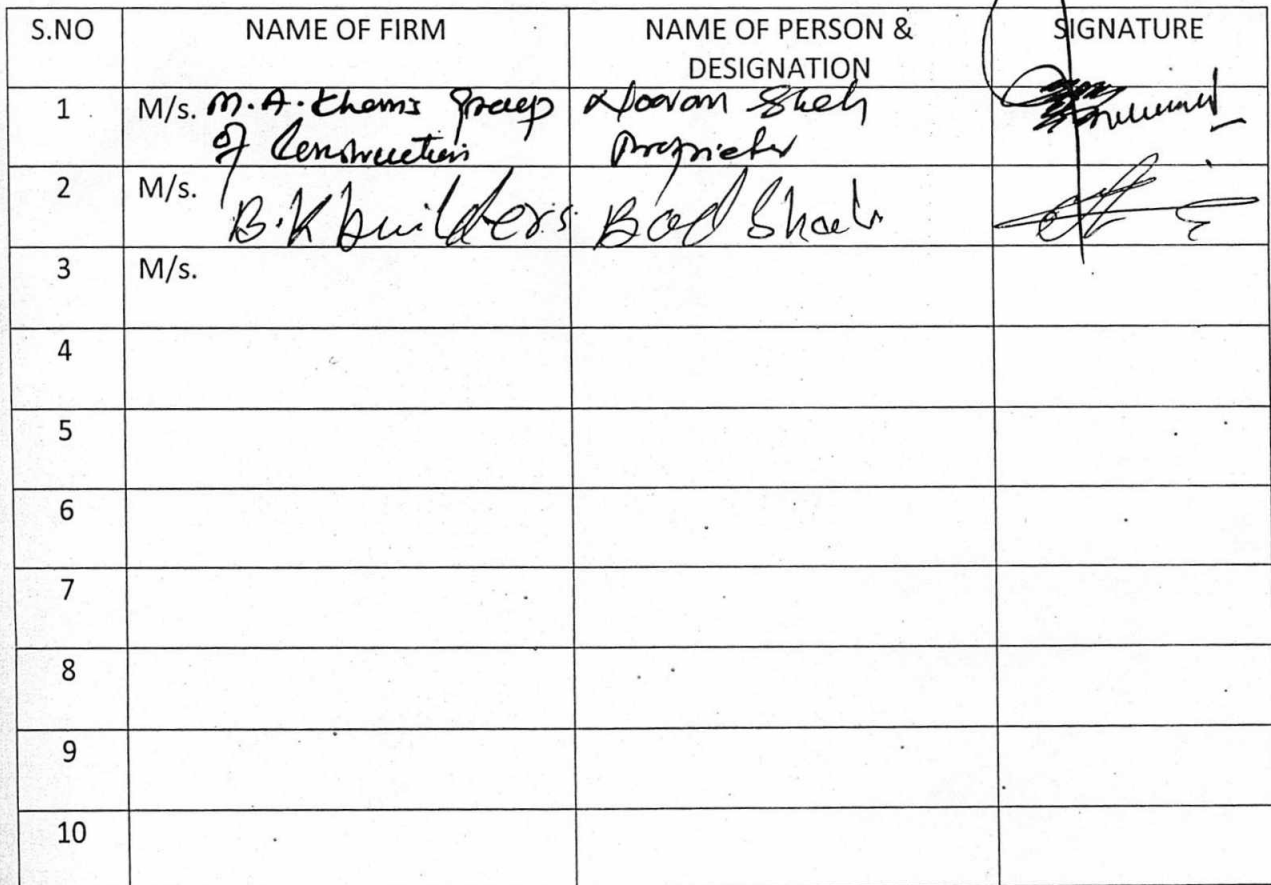 S.NO NAME OF FIRM NAME OF PERSON & SIGNATURE
DESIGNATION
1 M/s. M.A. Khan's Group Shah
of Construction Proprietor
2 M/s. B.K builders Bad Shah
3 M/s.
4
5
6
7
8
9
10